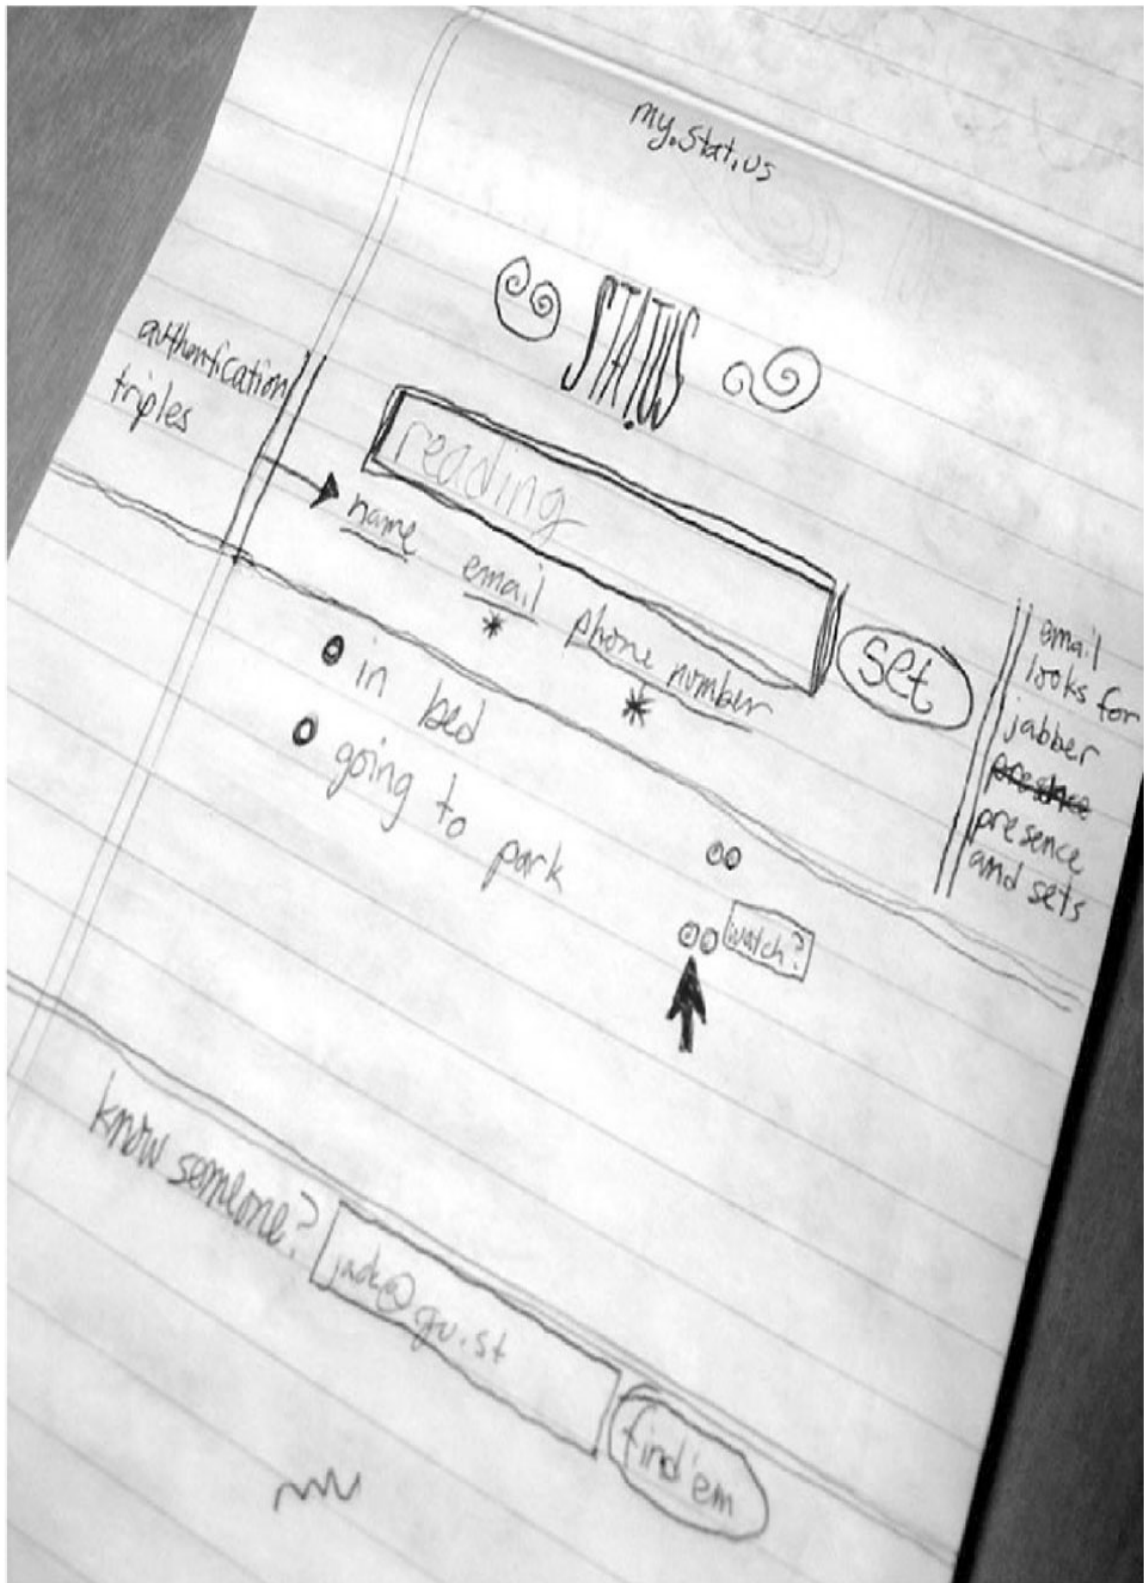 my.stat.us
STAT.US
authentification
triples
reading
name email phone number
* *
set
email
looks for
jabber
presence
presence
and sets
in bed
going to park
watch?
know someone?
jack@gu.st
find'em